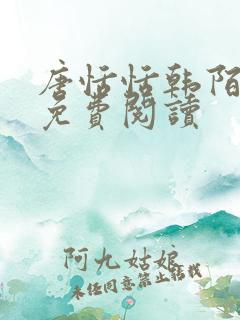 唐恬恬韩陌
免費閱讀
阿九姑娘
未经同意禁止转载